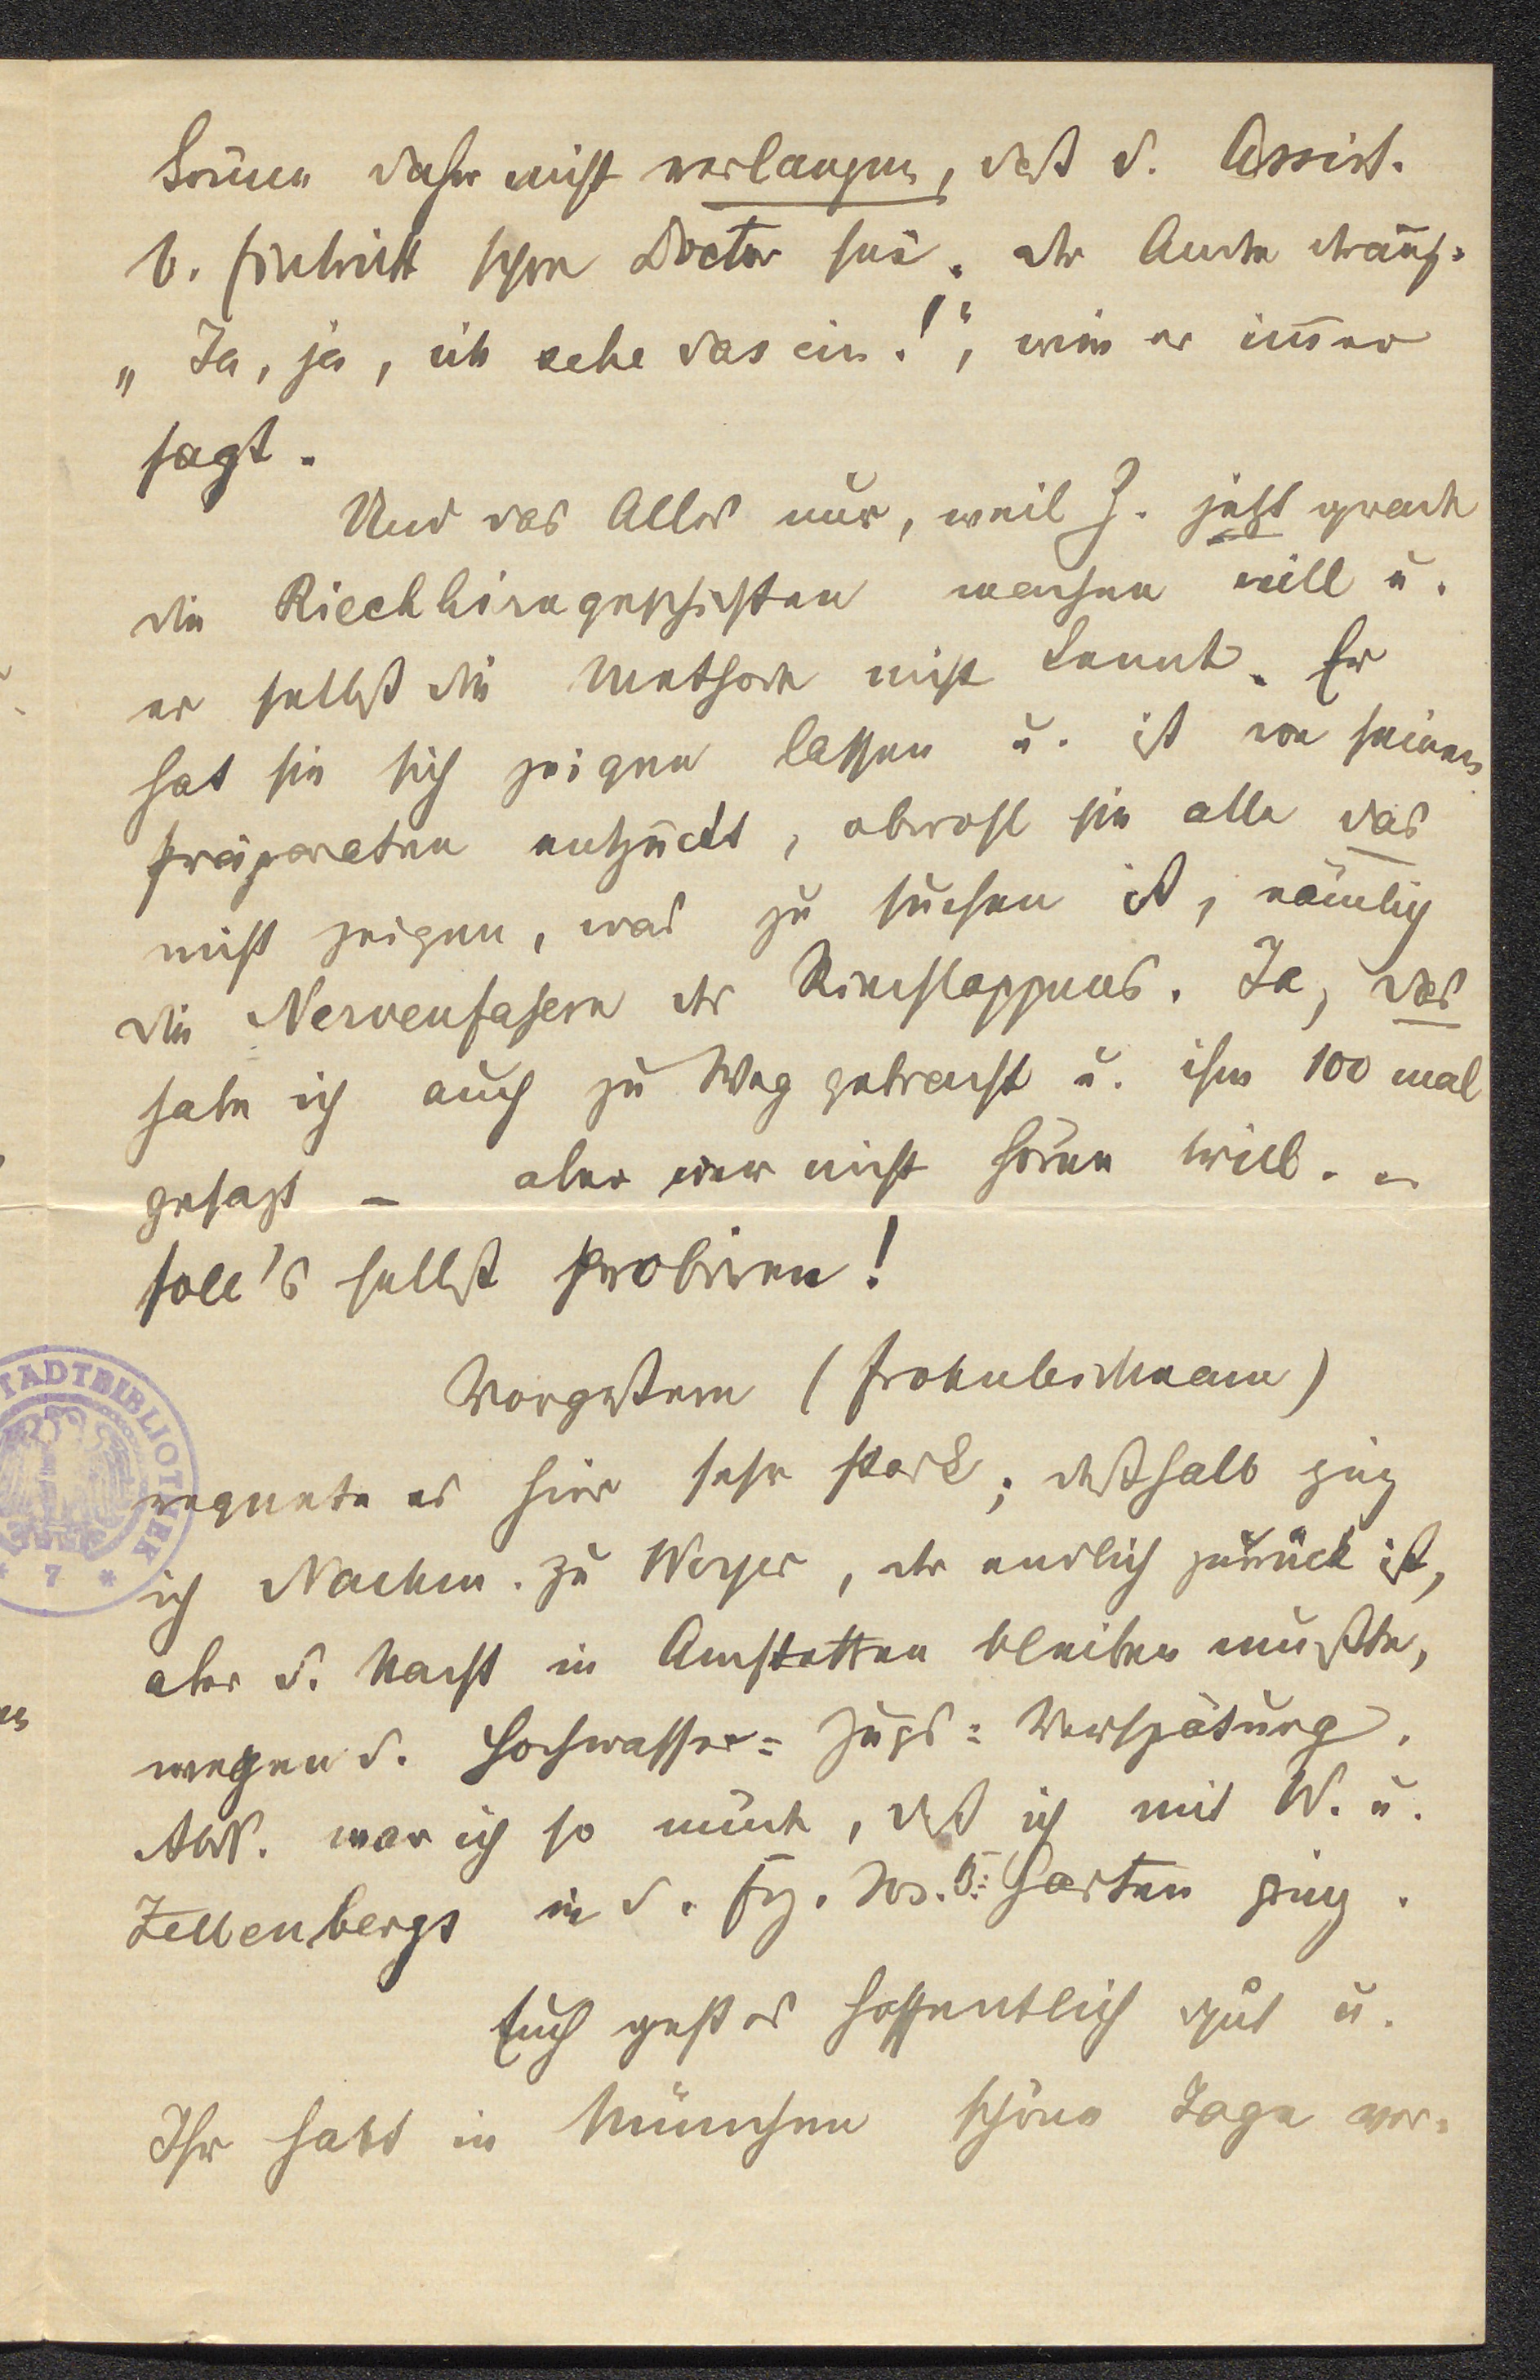 können daher nicht verlangen, daß d. Assist.
b. Eintritt schon Doctor sei. der Andre drauf:
„Ja, ja, ich sehe das ein!“, wie er im̄er
sagt.
Und das Alles nur, weil Z. jetzt grade
die Riechhirngeschichten machen will u.
er selbst die Methode nicht kennt. Er
hat sie sich zeigen lassen u. ist von seinen
Präparaten entzückt, obwohl sie alle das
nicht zeigen, was zu suchen ist, nämlich
die Nervenfasern des Riechlappens. Ja, das
habe ich auch zu Weg gebracht u. ihm 100 mal
gesagt – aber wer nicht hören will..
soll's selbst probiren!
Vorgestern (Frohnleichnam)
regnete es hier sehr stark; deßhalb ging
ich Nachm. zu Weyer, der endlich zurück ist,
aber d. Nacht in Amstetten bleiben mußte,
wegen d. Hochwasser-Zugs-Verspätung.
Abds. war ich so müde, daß ich mit W. u.
Zellenbergs in d. Garten ging.
Euch geht es hoffentlich gut u.
Ihr habt in München schöne Tage ver-
STADTBIBLIOTHEK
* 7 *